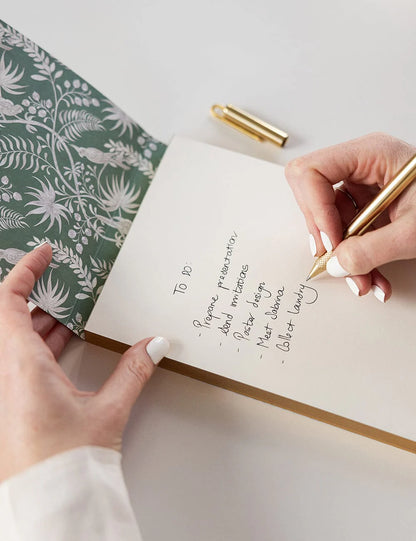 To do:
- Prepare presentation
- Send invitations
- Poster design
- Meet Sabina
- Collect laundry